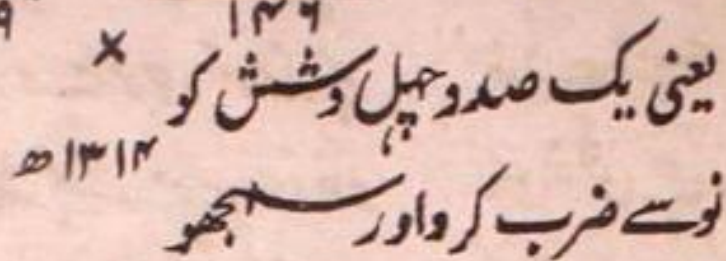 ۱۴۶ × ۹
یعنی یک صد و چہل و شش کو
۱۳۱۴ھ
نو سے ضرب کرو اور سمجھو